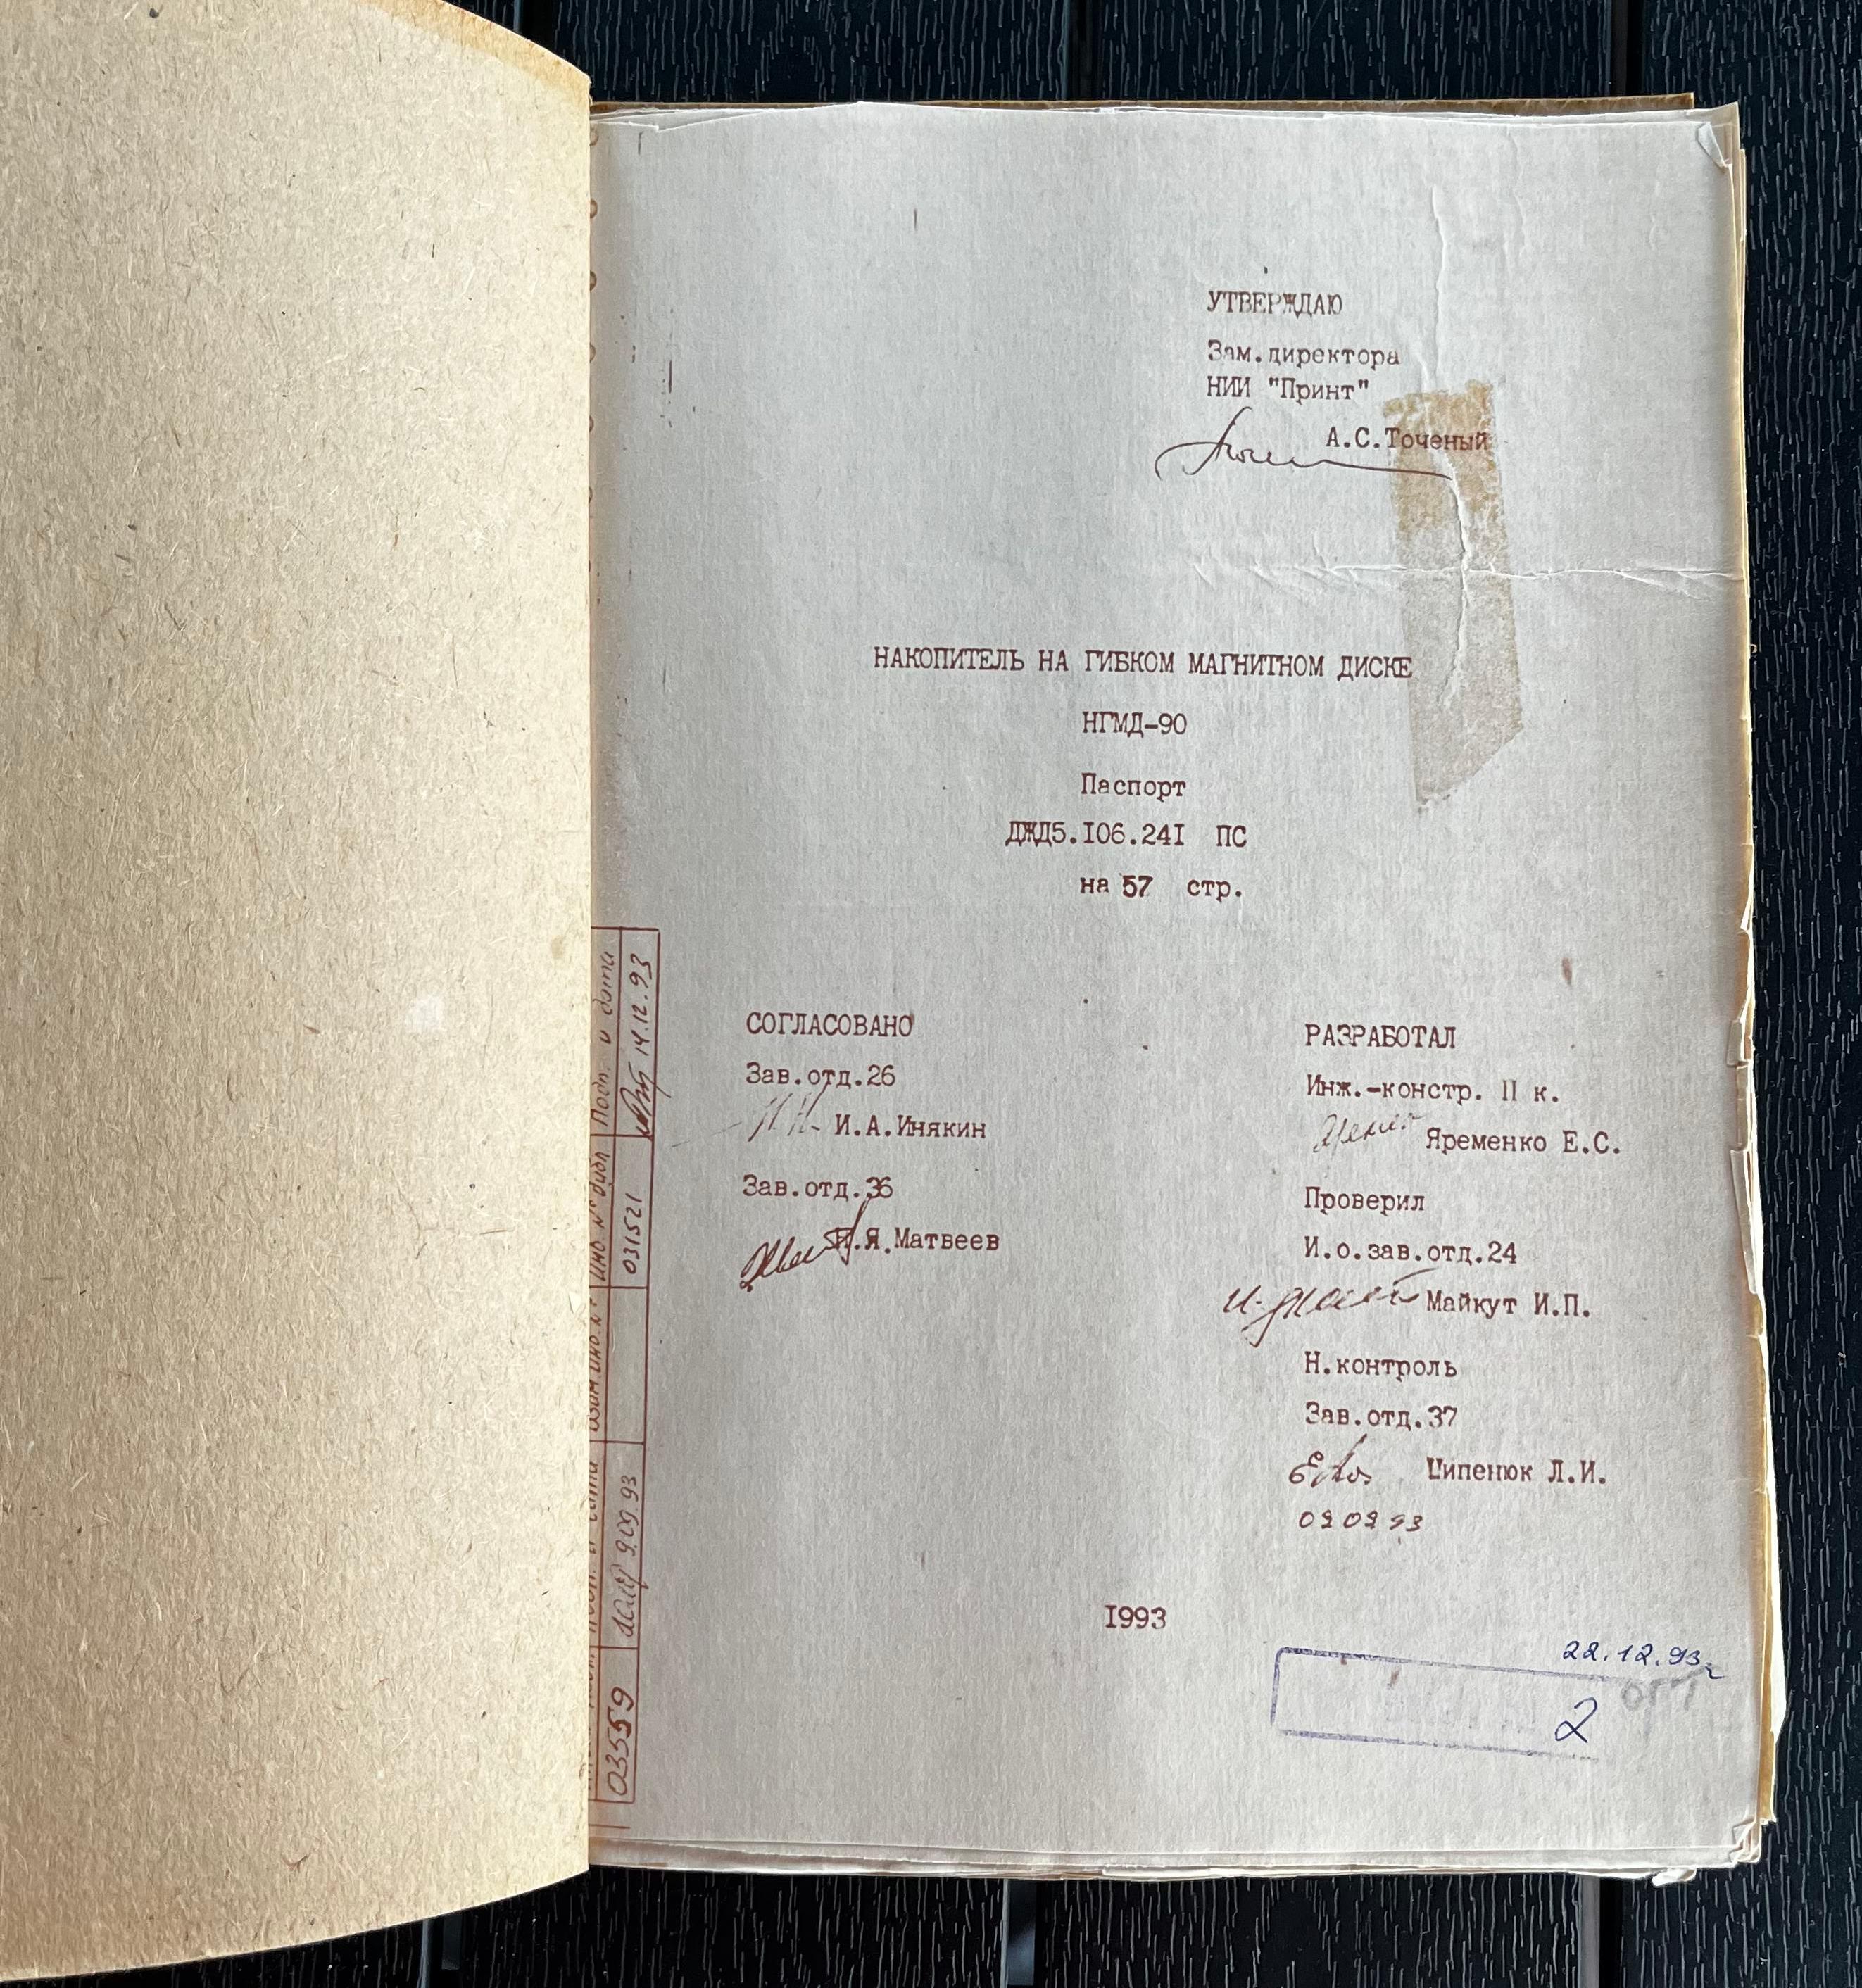 УТВЕРЖДАЮ
Зам.директора
НИИ "Принт"
А.С.Точеный
НАКОПИТЕЛЬ НА ГИБКОМ МАГНИТНОМ ДИСКЕ
НГМД-90
Паспорт
ДЖД5.I06.24I ПС
на 57 стр.
СОГЛАСОВАНО
Зав.отд.26
И.А.Инякин
Зав.отд.36
Я.Матвеев
РАЗРАБОТАЛ
Инж.-констр. II к.
Яременко Е.С.
Проверил
И.о.зав.отд.24
Майкут И.П.
Н.контроль
Зав.отд.37
Ципенюк Л.И.
09 09 93
I993
22.12.93г
2
Подп. и дата
14.12.93
Инв. № дубл
031521
Взам.инв. №
Подп. и дата
9.09.93
03559